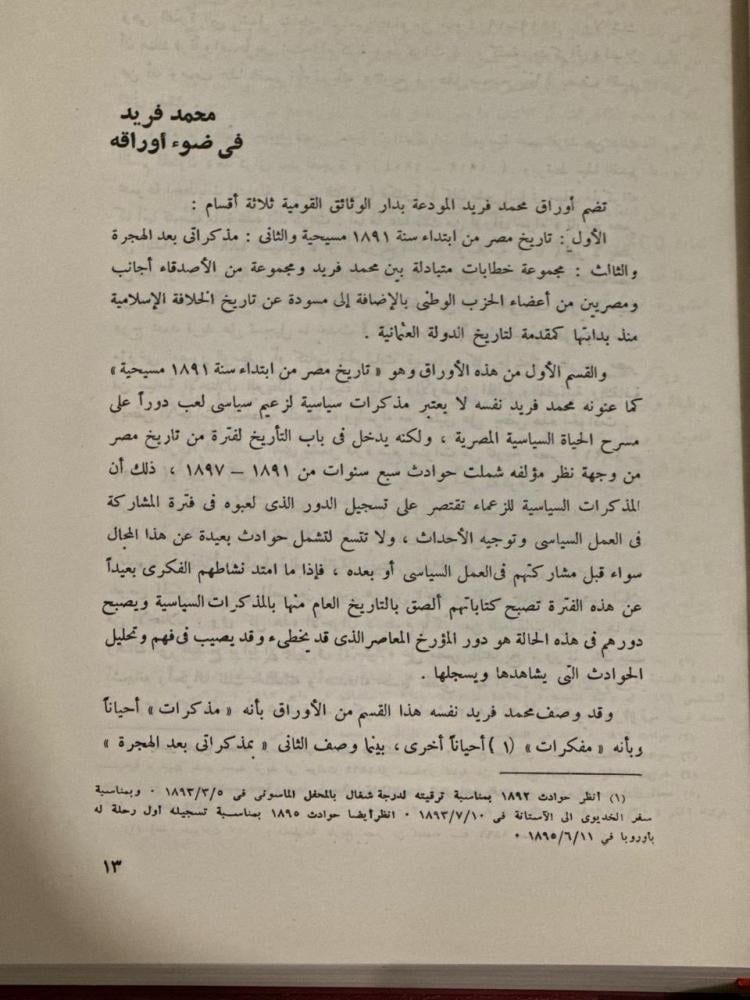 محمد فريد
فى ضوء أوراقه
تضم أوراق محمد فريد المودعة بدار الوثائق القومية ثلاثة أقسام :
الأول : تاريخ مصر من ابتداء سنة ١٨٩١ مسيحية والثانى : مذكراتى بعد الهجرة
والثالث : مجموعة خطابات متبادلة بين محمد فريد ومجموعة من الأصدقاء أجانب
ومصريين من أعضاء الحزب الوطنى بالإضافة إلى مسودة عن تاريخ الخلافة الإسلامية
منذ بداتها كمقدمة لتاريخ الدولة العثمانية .
والقسم الأول من هذه الأوراق وهو « تاريخ مصر من ابتداء سنة ١٨٩١ مسيحية »
كما عنونه محمد فريد نفسه لا يعتبر مذكرات سياسية لزعيم سياسى لعب دوراً على
مسرح الحياة السياسية المصرية ، ولكنه يدخل فى باب التأريخ لفترة من تاريخ مصر
من وجهة نظر مؤلفه شملت حوادث سبع سنوات من ١٨٩١ – ١٨٩٧ ، ذلك أن
المذكرات السياسية للزعماء تقتصر على تسجيل الدور الذى لعبوه فى فترة المشاركة
فى العمل السياسى وتوجيه الأحداث ، ولا تتسع لتشمل حوادث بعيدة عن هذا المجال
سواء قبل مشاركتهم فى العمل السياسى أو بعده ، فإذا ما امتد نشاطهم الفكرى بعيداً
عن هذه الفترة تصبح كتاباتهم ألصق بالتاريخ العام منها بالمذكرات السياسية ويصبح
دورهم فى هذه الحالة هو دور المؤرخ المعاصر الذى قد يخطىء وقد يصيب فى فهم وتحليل
الحوادث التى يشاهدها ويسجلها .
وقد وصف محمد فريد نفسه هذا القسم من الأوراق بأنه « مذكرات » أحياناً
وبأنه « مفكرات » (١) أحياناً أخرى ، بينما وصف الثانى « بمذكراتى بعد الهجرة »
(١) أنظر حوادث ١٨٩٢ بمناسبة ترقيته لدرجة شغال بالمحفل الماسونى فى ١٨٩٣/٣/٥ ٠ وبمناسبة
سفر الخديوى الى الآستانة فى ١٨٩٣/٧/١٠ ٠ انظر أيضا حوادث ١٨٩٥ بمناسبة تسجيله أول رحلة له
بأوروبا في ١٨٩٥/٦/١١ ٠
١٣